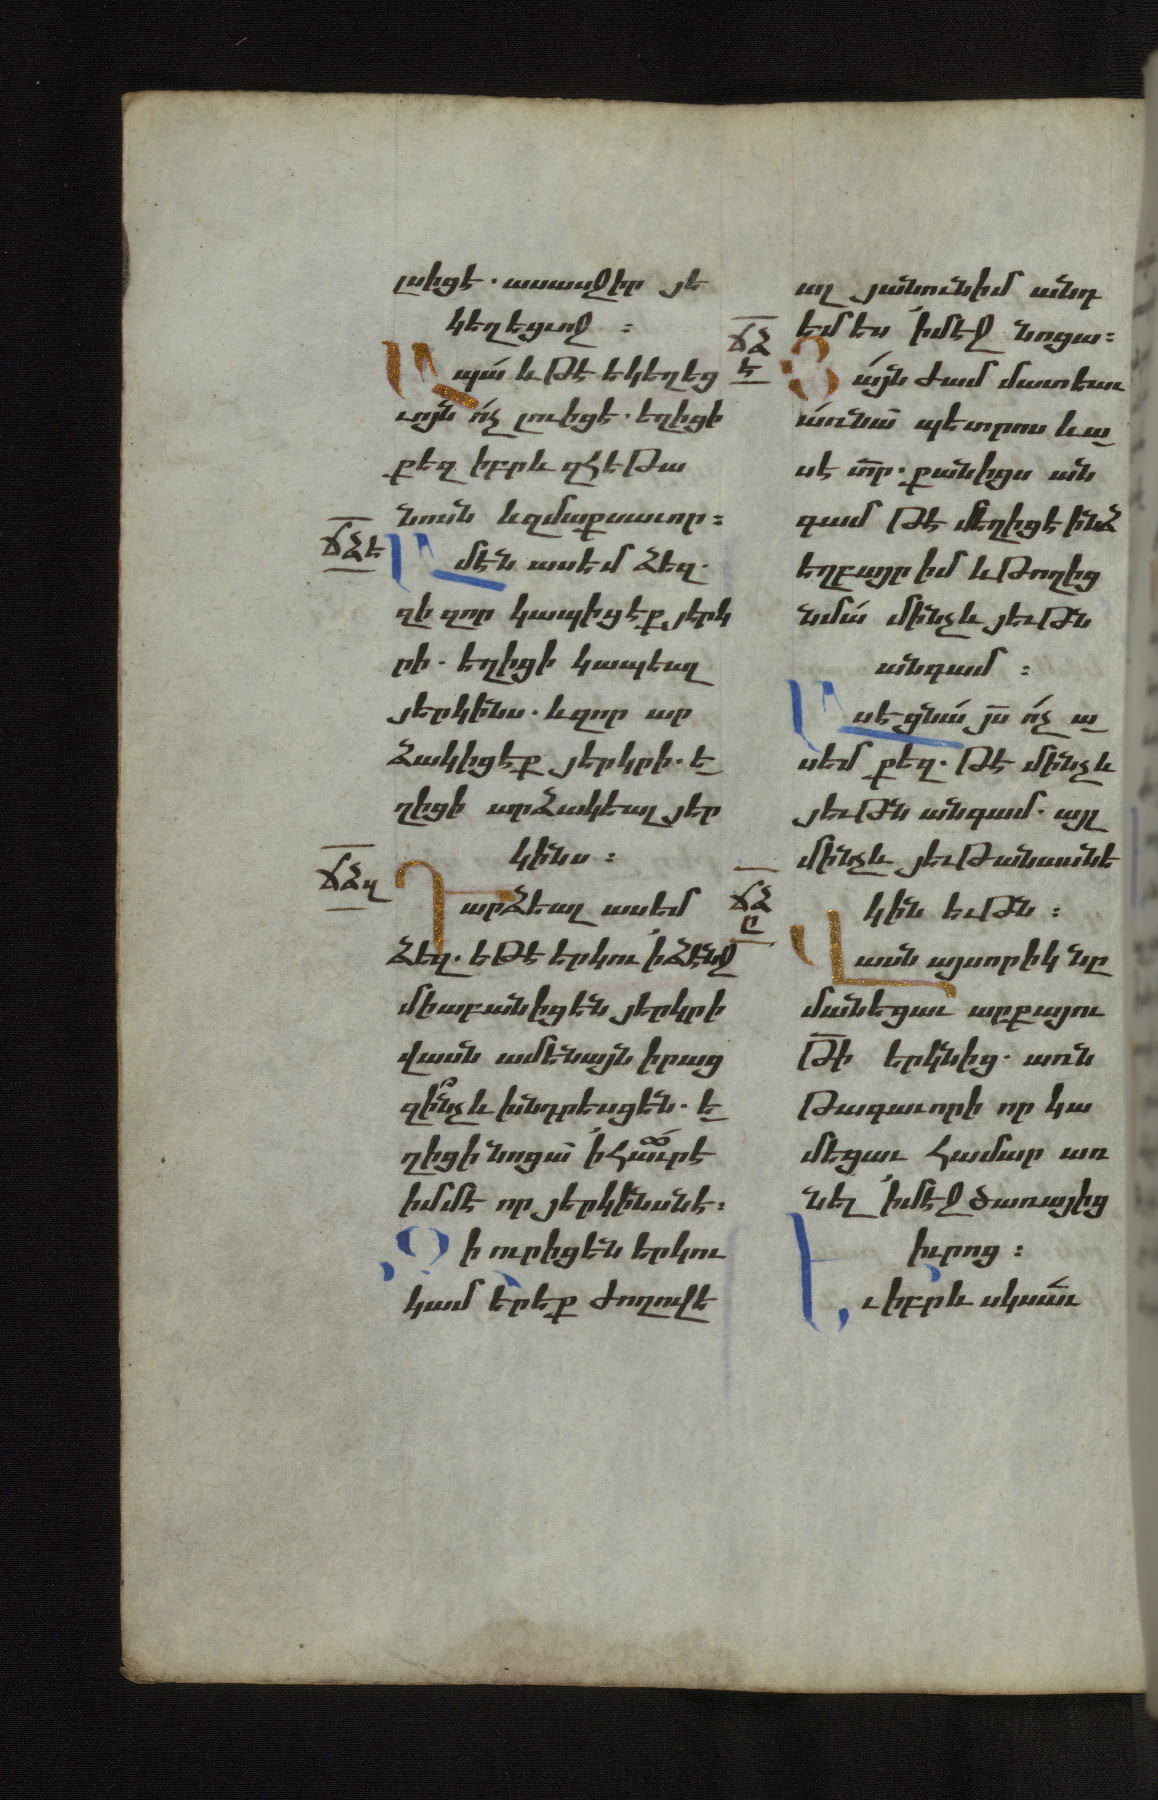 լսիցէ. ասասջիր յե
կեղեցւոջ :
Ապա և թէ եկեղեց
ւոյն ոչ լուիցէ. եղիցի
քեզ իբրև զհեթա
նոսն և զմաքսաւոր :
ՃՁԵ
Ամէն ասեմ ձեզ.
զի զոր կապիցէք յերկ
րի. եղիցի կապեալ
յերկինս. և զոր ար
ձակիցէք յերկրի. ե
ղիցի արձակեալ յեր
կինս :
ՃՁԶ
Դարձեալ ասեմ
ձեզ. եթե երկու ի ձէնջ
միաբանիցէն յերկրի
վասն ամենայն իրաց
զինչ և խնդրեսցեն. ե
ղիցի նոցա ի հաւրէ
իմմէ որ յերկինսնե :
Զի ուր իցէն երկու
կամ երեք ժողովե
ալ յանուն իմ անդ
եմ ես ի մէջ նոցա :
ՃՁ
Է
Յայն ժամ մատեաւ
առնա պետրոս և ա
սէ տր. քանիցս ան
գամ թէ մեղիցէ ինձ
եղբայր իմ և թողից
նմա մինչև յեւթն
անգամ :
Ասէ ցնա յս ոչ ա
սեմ քեզ. թէ մինչև
յեւթն անգամ. այլ
մինչև յեւթանասնե
կին եւթն :
ՃՁ
Ը
Վասն այսորիկ նը
մանեցաւ արքայու
թի երկնից. առն
թագաւորի որ կա
մեցաւ համար առ
նել ի մէջ ծառայից
իւրոց :
Եւ իբրև սկսաւ